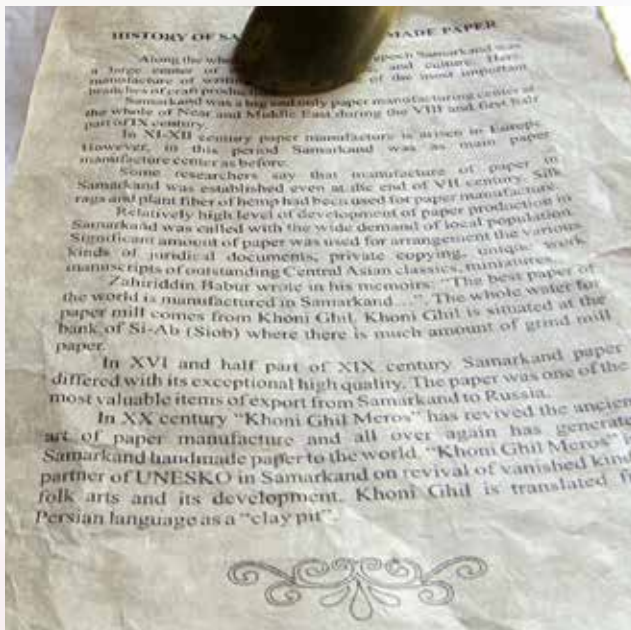 HISTORY OF SA MADE PAPER
Along the who epoch Samarkand was
a large center of and culture. Here
manufacture of writin of the most important
branches of craft produc
Samarkand was a big and only paper manufacturing center at
the whole of Near and Middle East during the VIII and first half
part of IX century.
In XI-XII century paper manufacture is arisen in Europe.
However, in this period Samarkand was as main paper
manufacture center as before.
Some researchers say that manufacture of paper in
Samarkand was established even at the end of VII century. Silk
rags and plant fiber of hemp had been used for paper manufacture.
Relatively high level of development of paper production in
Samarkand was called with the wide demand of local population.
Significant amount of paper was used for arrangement the various
kinds of juridical documents, private copying, unique work
manuscripts of outstanding Central Asian classics, miniatures...
Zahiriddin Babur wrote in his memoirs: "The best paper of
the world is manufactured in Samarkand...". The whole water for
paper mill comes from Khoni Ghil. Khoni Ghil is situated at the
bank of Si-Ab (Siob) where there is much amount of grind mill
paper.
In XVI and half part of XIX century Samarkand paper
differed with its exceptional high quality. The paper was one of the
most valuable items of export from Samarkand to Russia.
In XX century "Khoni Ghil Meros" has revived the ancien
art of paper manufacture and all over again has generate
Samarkand handmade paper to the world. "Khoni Ghil Meros" i
partner of UNESKO in Samarkand on revival of vanished kind
folk arts and its development. Khoni Ghil is translated f
Persian language as a "clay pit".